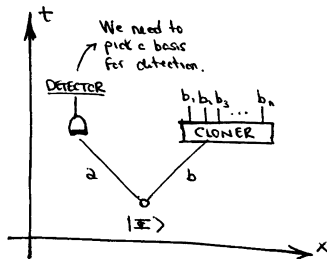 t
We need to
pick a basis
for detection.
DETECTOR
b₁ b₂ b₃ ... bₙ
CLONER
a
b
|Φ⟩
x